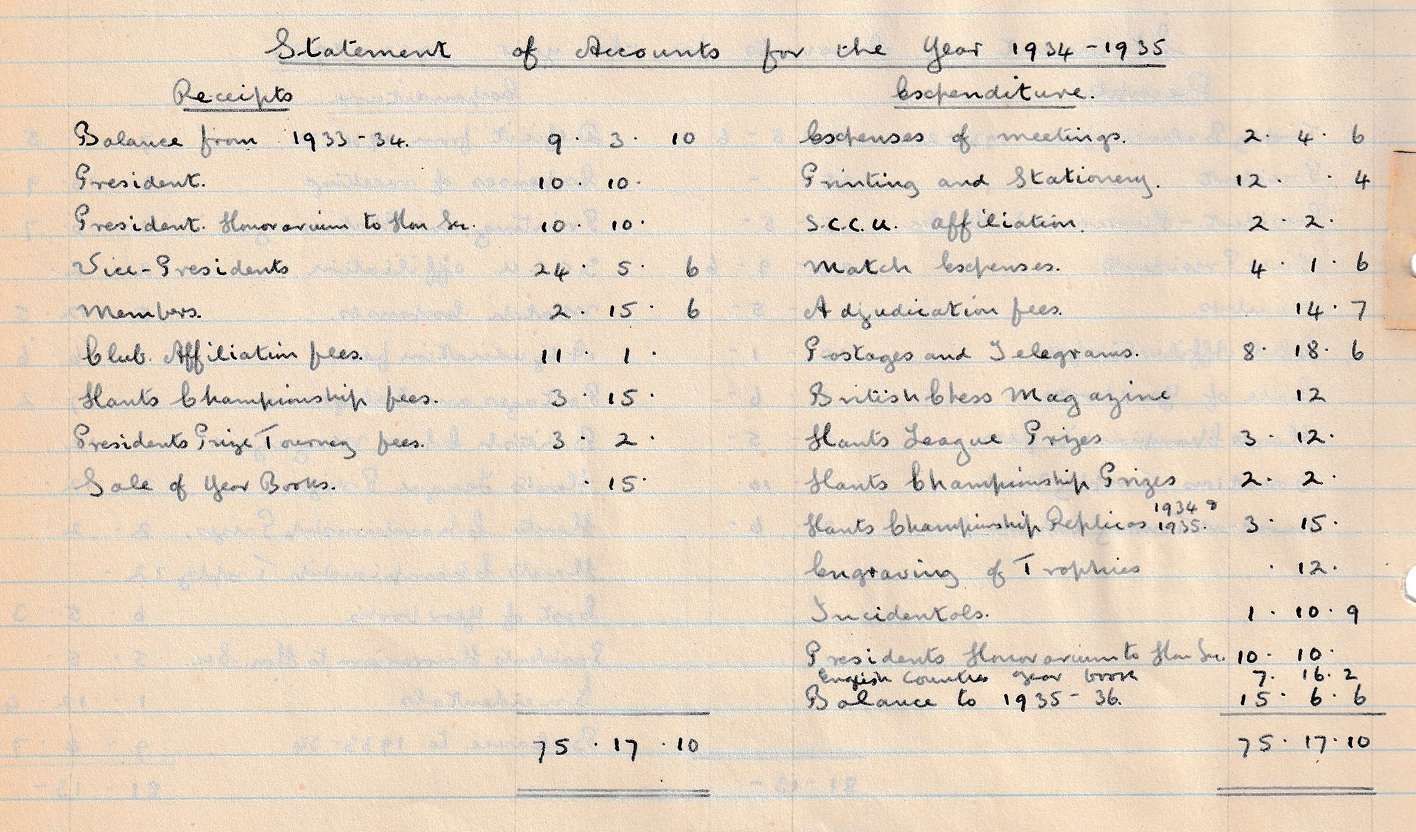 Statement of Accounts for the Year 1934-1935
Receipts
Balance from 1933-34. 9 . 3 . 10
President. 10 . 10 .
President. Honorarium to Hon Sec. 10 . 10 .
Vice-Presidents 24 . 5 . 6
Members. 2 . 15 . 6
Club Affiliation fees. 11 . 1 .
Hants Championship fees. 3 . 15 .
Presidents Prize Tourney fees. 3 . 2 .
Sale of Year Books. . 15 .
75 . 17 . 10
Expenditure.
Expenses of meetings. 2 . 4 . 6
Printing and Stationery. 12 . . 4
S.C.C.U. affiliation. 2 . 2 .
Match Expenses. 4 . 1 . 6
Adjudication fees. 14 . 7
Postages and Telegrams. 8 . 18 . 6
British Chess Magazine 12
Hants League Prizes 3 . 12 .
Hants Championship Prizes 2 . 2 .
Hants Championship Replicas 1934 & 1935. 3 . 15 .
Engraving of Trophies . 12 .
Incidentals. 1 . 10 . 9
Presidents Honorarium to Hon Sec. 10 . 10 .
English Counties year book 7 . 16 . 2
Balance to 1935-36. 15 . 6 . 6
75 . 17 . 10